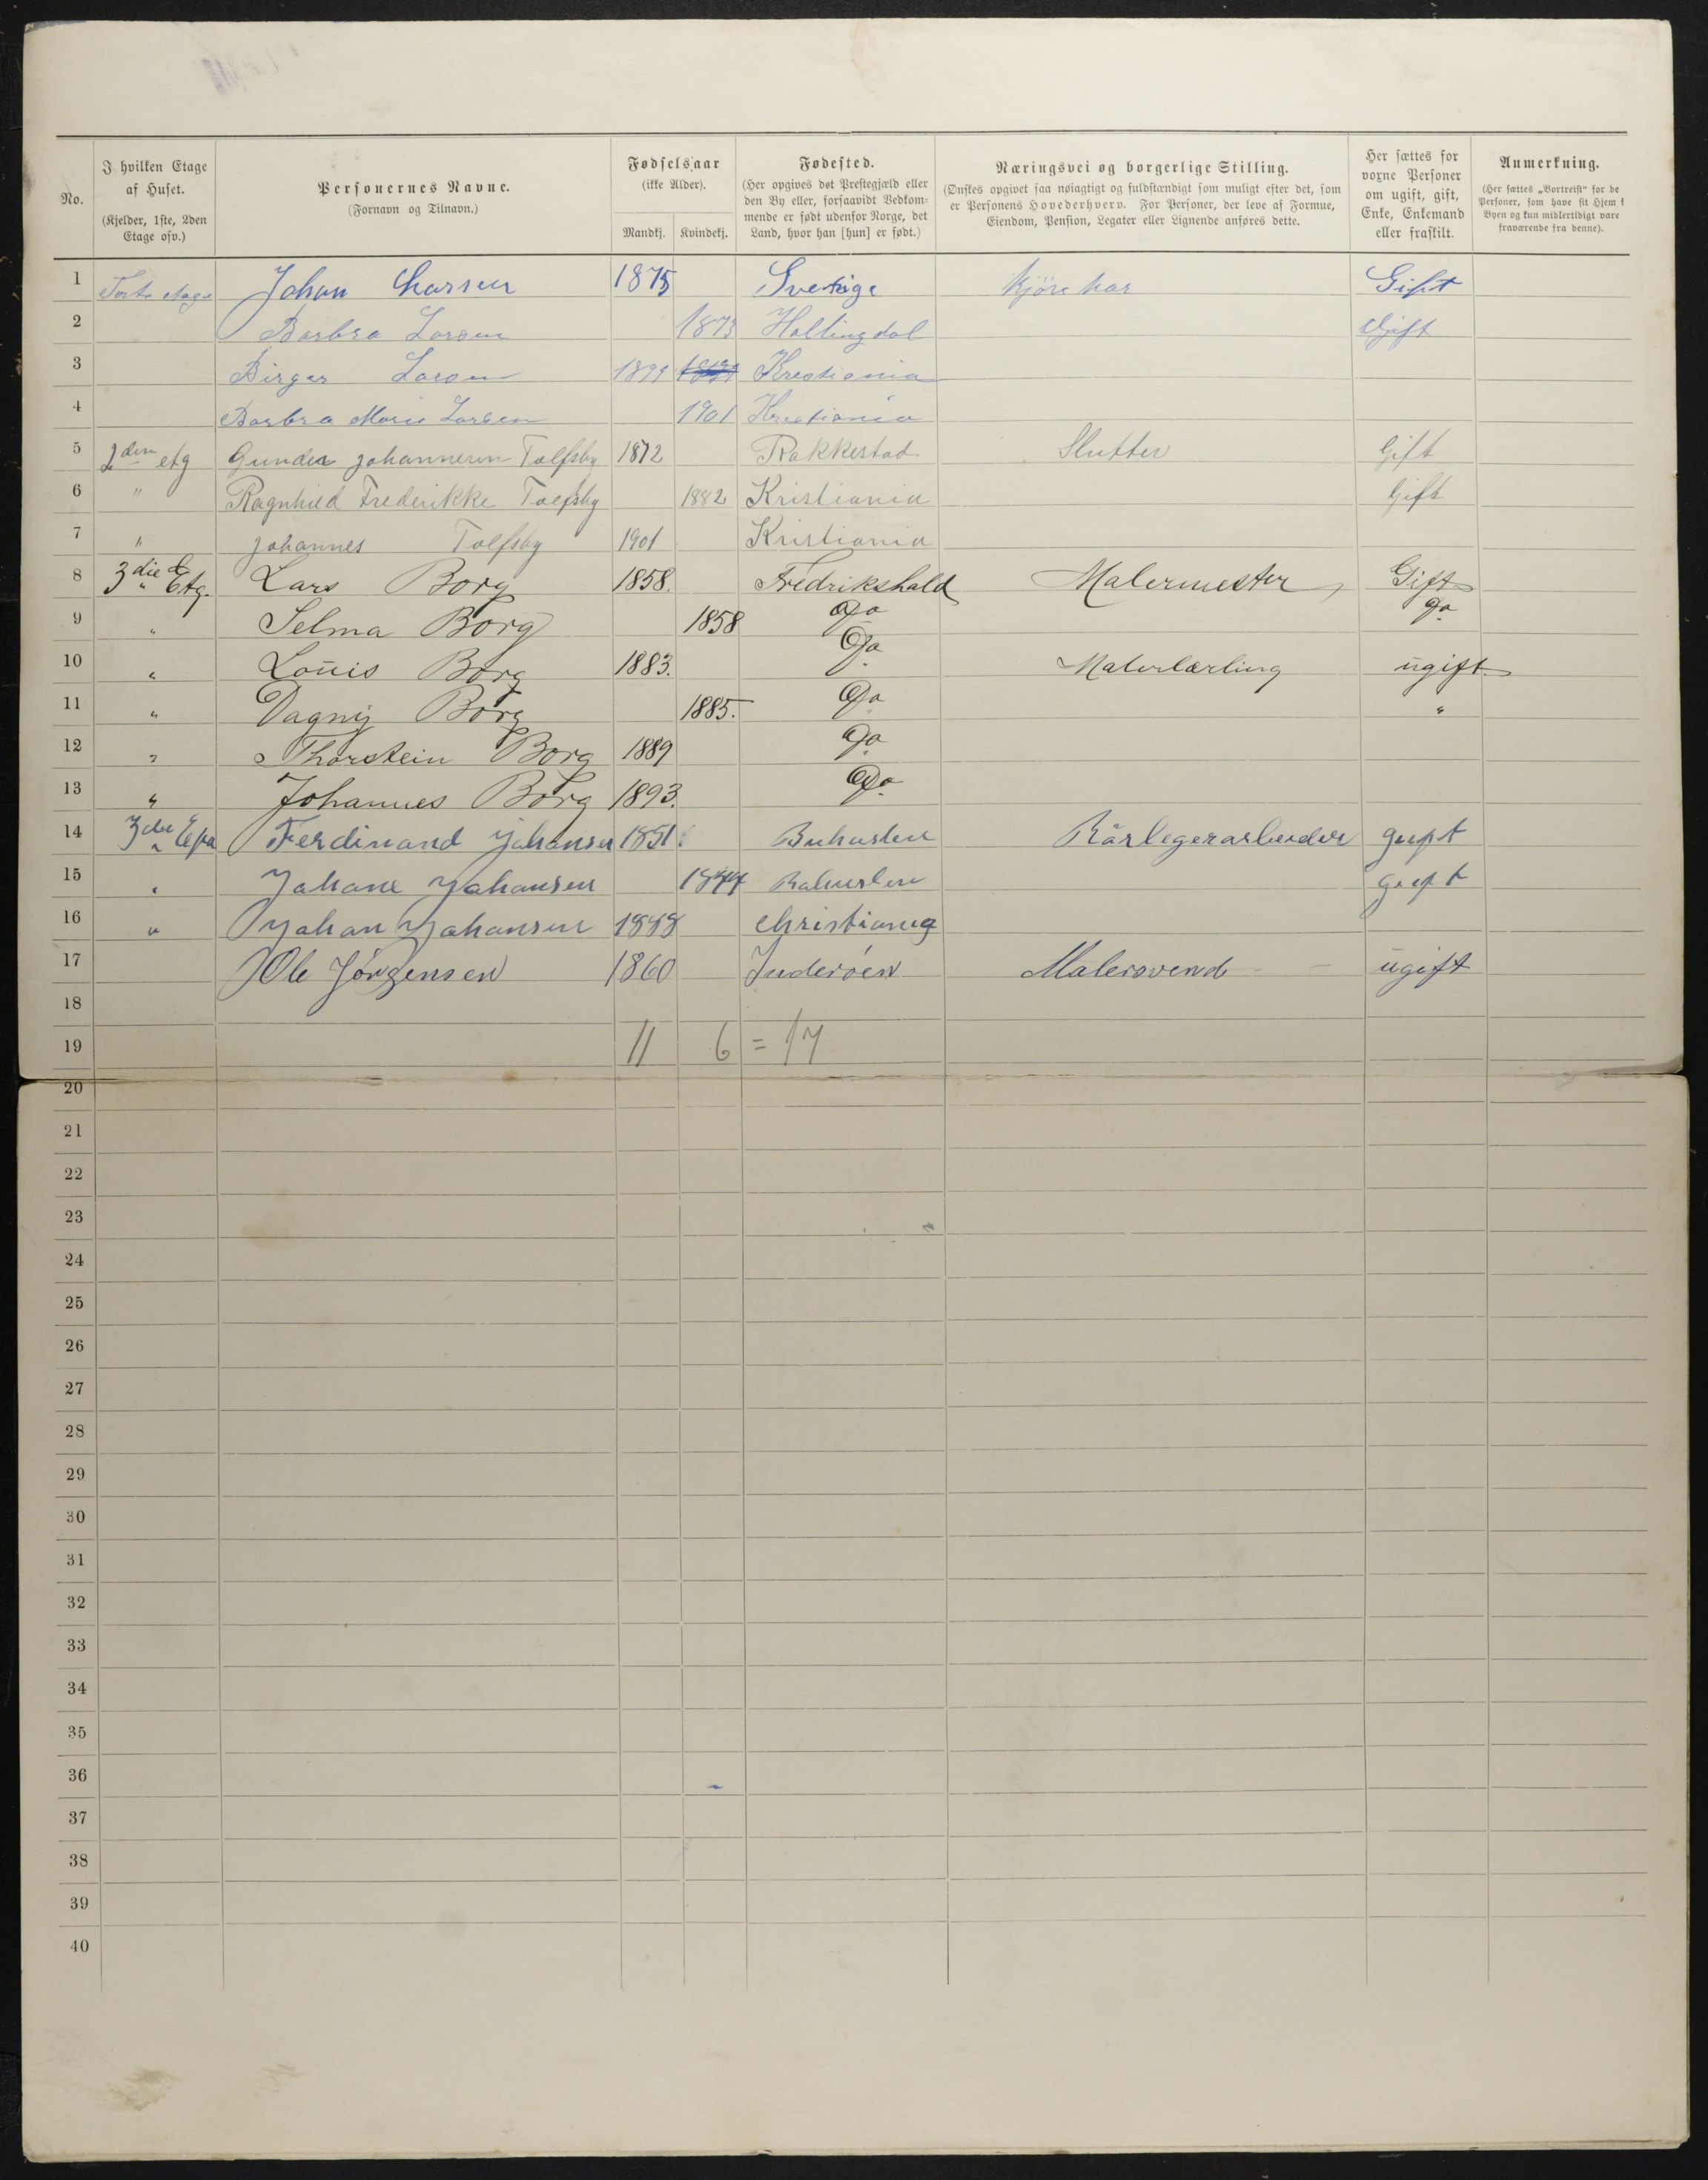 No.
I hvilken Etage af Huset. (Kjelder, 1ste, 2den Etage osv.)
Personernes Navne. (Fornavn og Tilnavn.)
Fødselsaar (ikke Alder). Mandkj. Kvindekj.
Fødested. (Her opgives det Prestegjæld eller den By eller, forsaavidt Vedkommende er født udenfor Norge, det Land, hvor han [hun] er født.)
Næringsvei og borgerlige Stilling. (Ønskes opgivet saa nøiagtigt og fuldstændigt som muligt efter det, som er Personens Hovederhverv. For Personer, der leve af Formue, Eiendom, Pension, Legater eller Lignende anføres dette.
Her sættes for voxne Personer om ugift, gift, Enke, Enkemand eller fraskilt.
Anmerkning. (Her sættes „Bortreist" for de Personer, som have sit Hjem i Byen og kun midlertidigt vare fraværende fra denne).
1 etage Johan Larsen 1875 Sverige Gift
2 Barbra Larsen 1873 Hallingdal Gift
3 Birger Larsen 1899 Krestiania
4 Barbra Marie Larsen 1901 Krestiania
5 2den etg Gunder Johannesen Tolfsby 1872 Rakkestad Slutter Gift
6 " Ragnhild Frederikke Tolfsby 1882 Kristiania Gift
7 " Johannes Tolfsby 1901 Kristiania
8 3die Etg. Lars Borg 1858. Fredrikshald Malermester Gift
9 " Selma Borg 1858 Do Do
10 " Louis Borg 1883. Do Malerlærling ugift
11 " Dagny Borg 1885. Do "
12 " Thorstein Borg 1889 Do
13 " Johannes Borg 1893. Do
14 3die Ferdinand Johansen 1851 Buhuslen Rärlegerarbeider gieft
15 " Johane Johansen Bahuslen gieft
16 " Johan Johansen christiania
17 Ole Jörgensen 1860 Inderöen Malersvend ugift
18
19 11 6 = 17
20
21
22
23
24
25
26
27
28
29
30
31
32
33
34
35
36
37
38
39
40